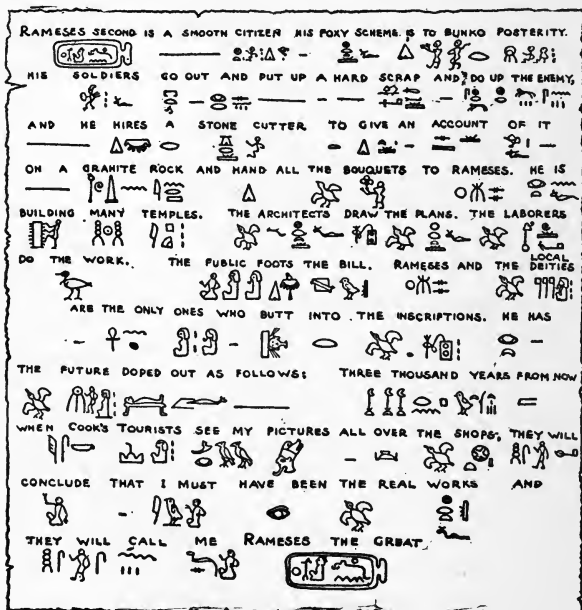 RAMESES SECOND IS A SMOOTH CITIZEN HIS FOXY SCHEME IS TO BUNKO POSTERITY.
HIS SOLDIERS GO OUT AND PUT UP A HARD SCRAP AND DO UP THE ENEMY,
AND HE HIRES A STONE CUTTER TO GIVE AN ACCOUNT OF IT
ON A GRANITE ROCK AND HAND ALL THE BOUQUETS TO RAMESES. HE IS
BUILDING MANY TEMPLES. THE ARCHITECTS DRAW THE PLANS. THE LABORERS
DO THE WORK. THE PUBLIC FOOTS THE BILL. RAMESES AND THE LOCAL DEITIES
ARE THE ONLY ONES WHO BUTT INTO THE INSCRIPTIONS. HE HAS
THE FUTURE DOPED OUT AS FOLLOWS: THREE THOUSAND YEARS FROM NOW
WHEN COOK'S TOURISTS SEE MY PICTURES ALL OVER THE SHOPS, THEY WILL
CONCLUDE THAT I MUST HAVE BEEN THE REAL WORKS AND
THEY WILL CALL ME RAMESES THE GREAT